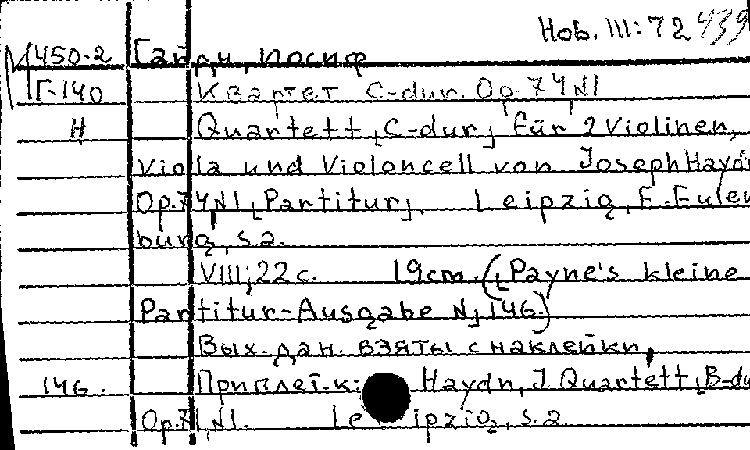 Hob. III:72 439
М450-2 Гайдн, Иосиф
Г-140 Квартет C-dur. Op.74 N1
H Quartett [C-dur] für 2 Violinen,
Viola und Violoncell von Joseph Haydn
Op.74 N1 [Partitur]. Leipzig, E. Eulen-
burg, s.a.
VIII; 22 с. 19cm. ([Payne's kleine
Partitur-Ausgabe N] 146.)
Вых. дан. взяты с наклейки.
146. Приплет. к: Haydn, J. Quartett [B-du
Op.71, N1. Leipzig, s.a.